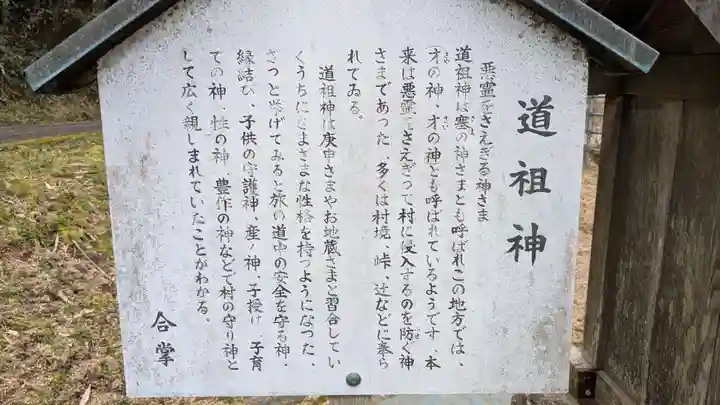 道祖神
悪霊をさえぎる神さま
道祖神は塞の神さまとも呼ばれこの地方では、
(才の神、才の神とも呼ばれているようです、本
来は悪霊をさえぎって村に侵入するのを防ぐ神
さまであった、多くは村境、峠、辻などに奉ら
れてゐる。
道祖神は庚申さまやお地蔵さまと習合してい
くうちにさまざまな性格を持つようになった、
ざっと挙げてみると旅の道中の安全を守る神、
縁結び、子供の守護神、産ノ神、子授け、子育
ての神、性の神、豊作の神などで村の守り神と
して広く親しまれていたことがわかる。
合掌